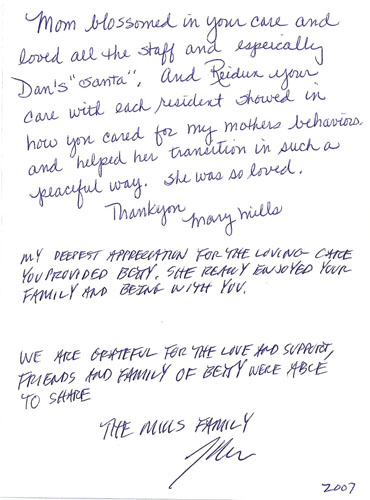 Mom blossomed in your care and
loved all the staff and especially
Dan's "Santa". And Reidun your
care with each resident showed in
how you cared for my mothers behaviors
and helped her transition in such a
peaceful way. She was so loved.
Thankyou Mary Mills
MY DEEPEST APPRECIATION FOR THE LOVING CARE
YOU PROVIDED BETTY. SHE REALLY ENJOYED YOUR
FAMILY AND BEING WITH YOU.
WE ARE GRATEFUL FOR THE LOVE AND SUPPORT,
FRIENDS AND FAMILY OF BETTY WERE ABLE
TO SHARE
THE MILLS FAMILY
2007